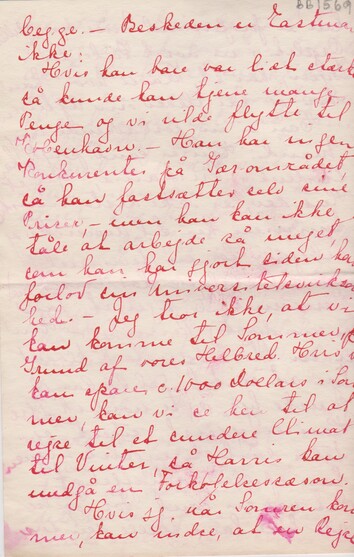 BB/569
begge. - Beskeden er Eastman
ikke:
Hvis han bare var lidt stærk
så kunde han tjene mange
Penge og vi vilde flytte til
København. - Han har ingen
Konkurrenter på Gærområdet,
så han fastsætter selv sine
Priser, - men han kan ikke
tåle at arbejde så meget,
som han har gjort siden han
forlod sin Universitets
- Jeg tror ikke, at vi
kan komme til Sommer, på
Grund af vores Helbred. Hvis vi
kan spare c. 1000 Dollars i Som
mer, kan vi se hen til at
rejse til et sundere Climat
til Vinter, så Harris kan
undgå en Forkølelsessæson.
Hvis jeg, når Somren kom
mer, kan indse, at en Rejse